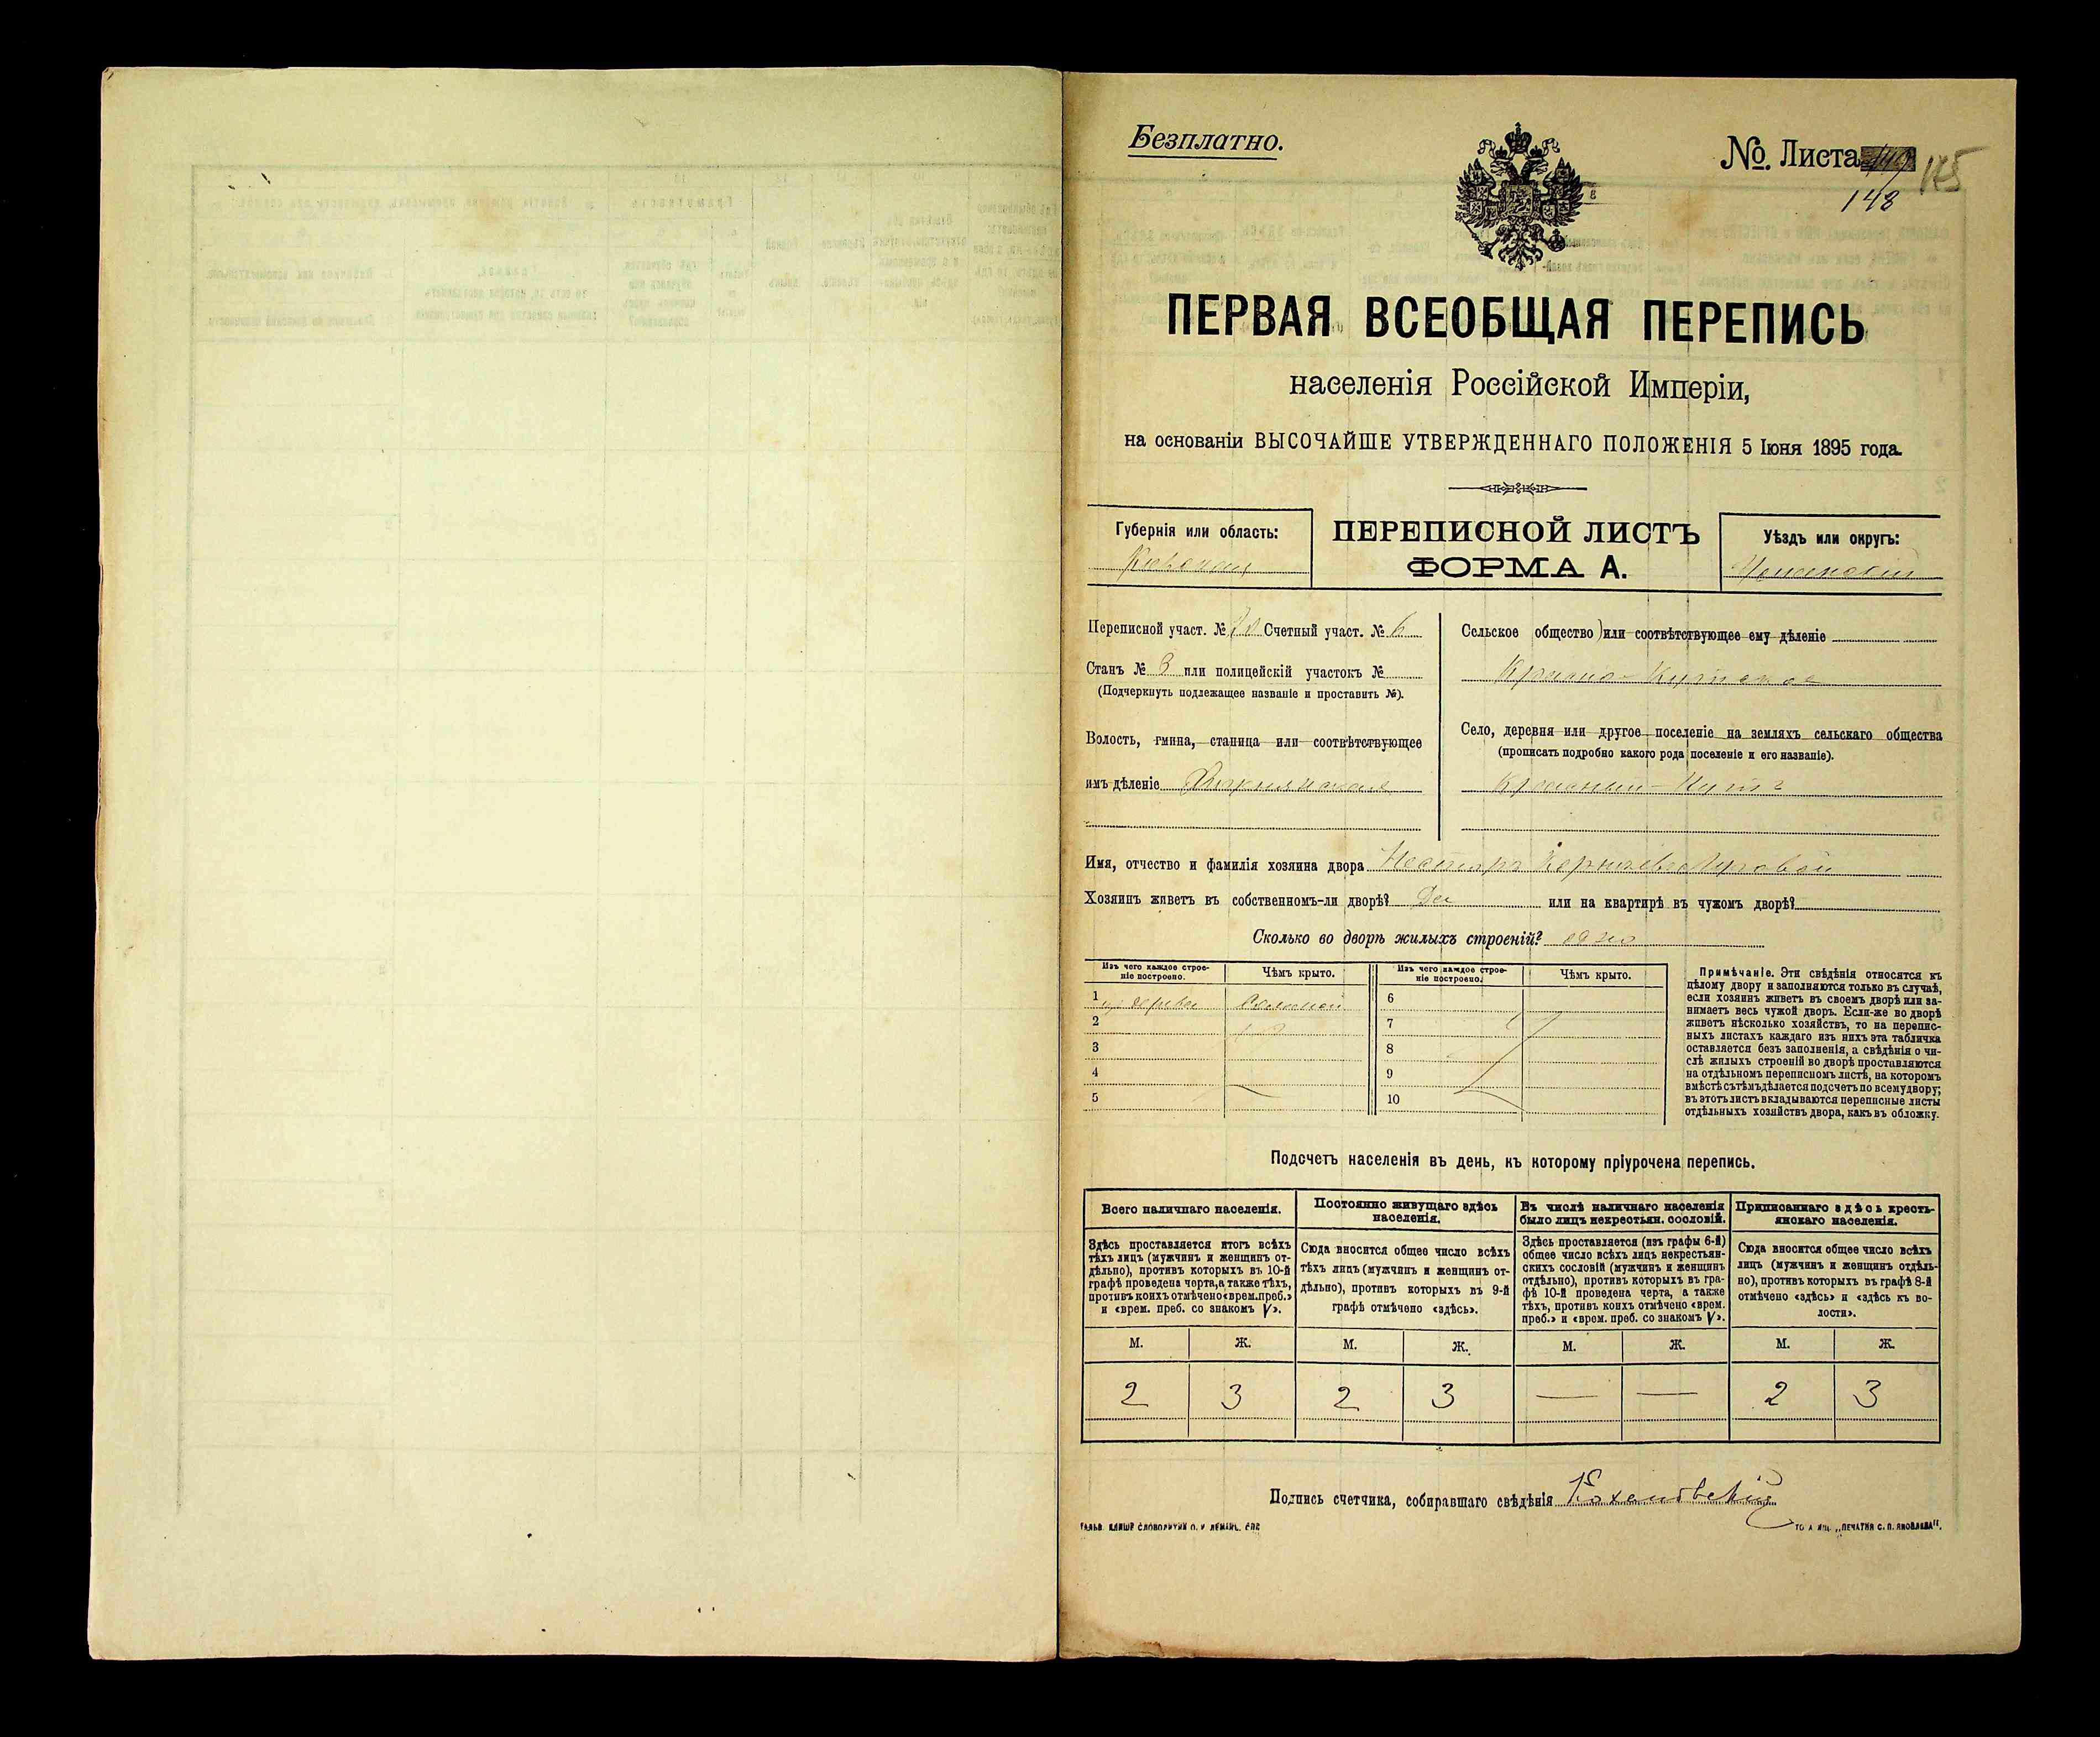 Безплатно.
№ Листа
148
175
ПЕРВАЯ ВСЕОБЩАЯ ПЕРЕПИСЬ
населенія Россійской Имперіи,
на основаніи ВЫСОЧАЙШЕ УТВЕРЖДЕННАГО ПОЛОЖЕНІЯ 5 Іюня 1895 года.
Губернія или область:
Кіевская
ПЕРЕПИСНОЙ ЛИСТЪ
ФОРМА А.
Уѣздъ или округъ:
Уманскій
Переписной участ. № Счетный участ. № 6
Станъ № 3 или полицейскій участокъ №
(Подчеркнуть подлежащее названіе и проставить №).
Волость, гмина, станица или соотвѣтствующее
имъ дѣленіе
Сельское общество или соотвѣтствующее ему дѣленіе
Красно-Кутское
Село, деревня или другое поселеніе на земляхъ сельскаго общества
(прописать подробно какого рода поселеніе и его названіе).
Красный-Кутъ
Имя, отчество и фамилія хозяина двора Несторъ Луговой
Хозяинъ живетъ въ собственномъ-ли дворѣ? Да или на квартирѣ въ чужомъ дворѣ?
Сколько во дворѣ жилыхъ строеній? одно
Изъ чего каждое строе-
ніе построено.
Чѣмъ крыто.
Изъ чего каждое строе-
ніе построено.
Чѣмъ крыто.
1 изъ дерева Соломой
2
3
4
5
6
7
8
9
10
Примѣчаніе. Эти свѣдѣнія относятся къ
цѣлому двору и заполняются только въ случаѣ,
если хозяинъ живетъ въ своемъ дворѣ или за-
нимаетъ весь чужой дворъ. Если-же во дворѣ
живетъ нѣсколько хозяйствъ, то на перепис-
ныхъ листахъ каждаго изъ нихъ эта табличка
оставляется безъ заполненія, а свѣдѣнія о чи-
слѣ жилыхъ строеній во дворѣ проставляются
на отдѣльномъ переписномъ листѣ, на которомъ
вмѣстѣ съ тѣмъ дѣлается подсчетъ по всему двору;
въ этотъ листъ вкладываются переписные листы
отдѣльныхъ хозяйствъ двора, какъ въ обложку.
Подсчетъ населенія въ день, къ которому пріурочена перепись.
Всего наличнаго населенія.
Здѣсь проставляется итогъ всѣхъ
тѣхъ лицъ (мужчинъ и женщинъ от-
дѣльно), противъ которыхъ въ 10-й
графѣ проведена черта, а также тѣхъ,
противъ коихъ отмѣчено «врем. преб.»
и «врем. преб. со знакомъ V».
Постоянно живущаго здѣсь
населенія.
Сюда вносится общее число всѣхъ
тѣхъ лицъ (мужчинъ и женщинъ от-
дѣльно), противъ которыхъ въ 9-й
графѣ отмѣчено «здѣсь».
Въ числѣ наличнаго населенія
было лицъ некрестьян. сословій.
Здѣсь проставляется (изъ графы 6-й)
общее число всѣхъ лицъ некрестьян-
скихъ сословій (мужчинъ и женщинъ
отдѣльно), противъ которыхъ въ гра-
фѣ 10-й проведена черта, а также
тѣхъ, противъ коихъ отмѣчено «врем.
преб.» и «врем. преб. со знакомъ V».
Приписаннаго здѣсь кресть-
янскаго населенія.
Сюда вносится общее число всѣхъ
лицъ (мужчинъ и женщинъ отдѣль-
но), противъ которыхъ въ графѣ 8-й
отмѣчено «здѣсь» и «здѣсь къ во-
лости».
М. Ж. М. Ж. М. Ж. М. Ж.
2 3 2 3 — — 2 3
Подпись счетчика, собиравшаго свѣдѣнія